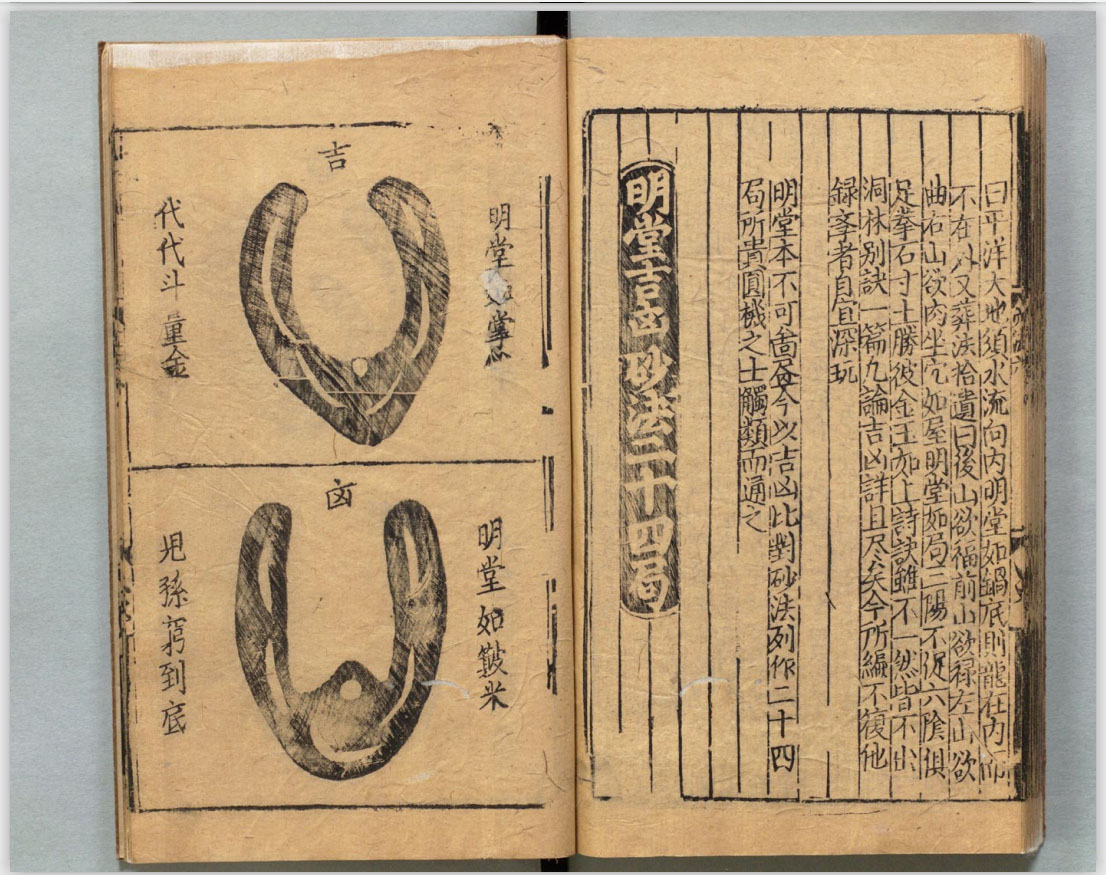 曰平洋大地須水流向内明堂如鍋底則龍在内而
不在外又葬法拾遺曰後山欲福前山欲禄左山欲
曲右山欲内坐穴如屋明堂如局二陽不促六陰俱
足拳石寸土勝彼金玉如上詩訣雖不一然皆不出
洞林别訣一篇九論吉凶詳且尽矣今所編不復他
録孝者自宜深玩
明堂本不可啚𦘕今以吉凶比對砂法列作二十四
局所貴圓機之士觸類而通之
明堂吉凶砂法二十四局
明堂如掌心
吉
代代斗量金
明堂如皷米
凶
児孫窮到底